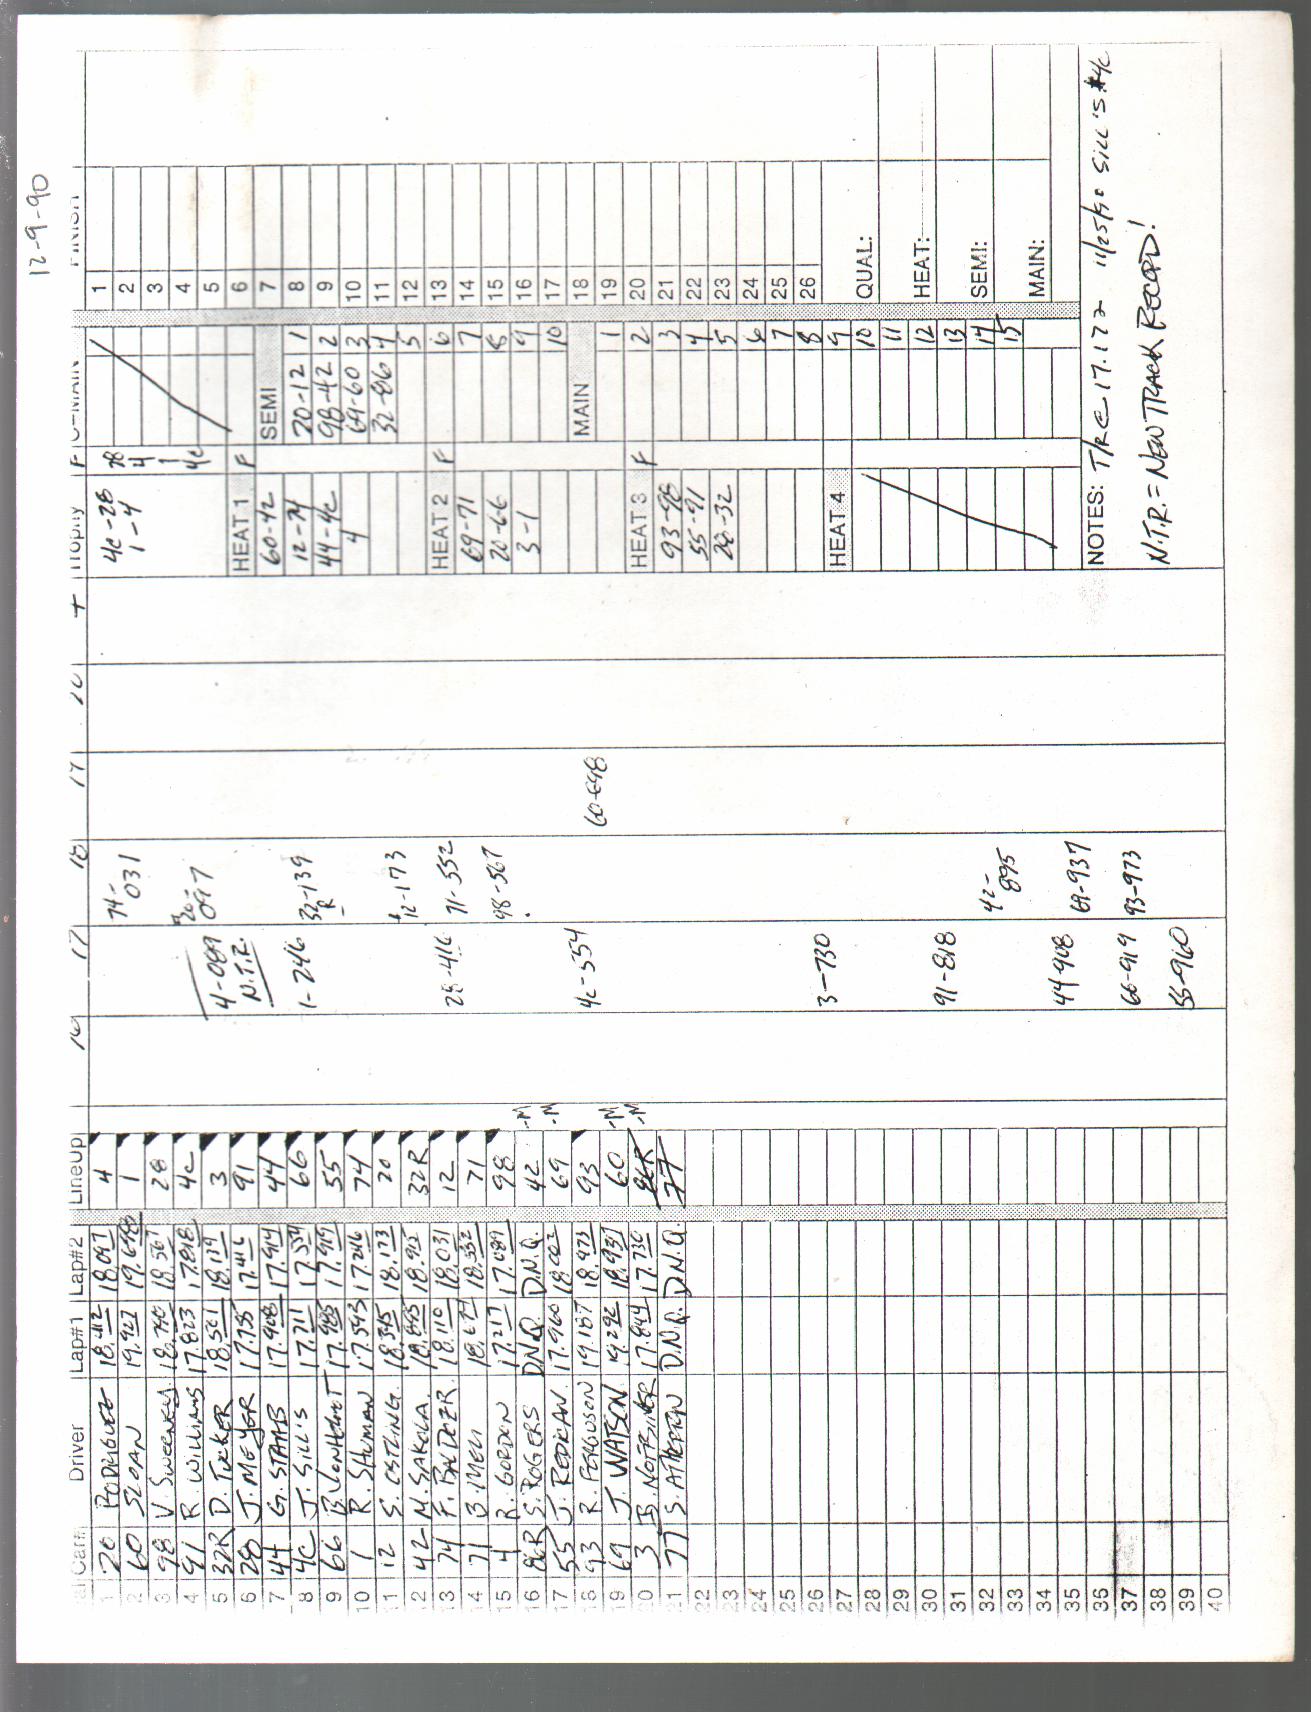 12-9-90
Car# Driver Lap#1 Lap#2 LineUp 16 17 18 17 Trophy F C-MAIN FINISH
1 20 RODRIGUEZ 18.412 18.097 4
2 60 SLOAN 19.927 19.698 1
3 98 V. SWEENEY 18.740 18.567 28
4 91 R. WILLIAMS 17.823 17.818 4C
5 32R D. TUCKER 18.501 18.139 3
6 28 J. MEYER 17.735 17.416 91
7 44 G. STAAB 17.908 17.914 44
8 4C J. SILL'S 17.711 17.554 66
9 66 B. VONHELMT 17.985 17.919 55
10 1 R. SHUMAN 17.543 17.246 74
11 12 S. OSTLING 18.345 18.173 20
12 42 M. SAKOLA 18.895 18.925 32R
13 74 F. BALDZER 18.110 18.031 12
14 71 B. MELI 18.671 18.552 71
15 4 R. GORDON 17.217 17.089 98
16 86R S. ROGERS DNQ D.N.Q. 42 -M
17 55 J. REDMAN 17.960 18.002 69 -M
18 93 R. FERGUSON 19.187 18.973 93
19 69 J. WATSON 19.292 18.937 60 -M
20 3 B. NOFRINER 17.844 17.730 86R -M
21 77 S. ATHERTON D.N.Q. D.N.Q. 77
22
23
24
25
26
27
28
29
30
31
32
33
34
35
36
37
38
39
40
4-089
N.T.R.
1-246
28-416
4C-554
3-730
91-818
44-908
66-919
55-960
74-
031
20-
097
32-139
R
12-173
71-552
98-567
42-
895
69-937
93-973
60-698
4C-28 28
1-4 4
1
4C
HEAT 1 F
60-42
12-74
44-4C
4
HEAT 2 F
69-71
20-66
3-1
HEAT 3 F
93-98
55-91
28-32
HEAT 4
SEMI
20-12 1
98-42 2
69-60 3
32-86 4
5
6
7
8
9
10
MAIN
1
2
3
4
5
6
7
8
9
10
11
12
13
14
15
1
2
3
4
5
6
7
8
9
10
11
12
13
14
15
16
17
18
19
20
21
22
23
24
25
26
QUAL:
HEAT:
SEMI:
MAIN:
NOTES: T/RC 17.172 11/25/90 SILL'S #4C
N.T.R. = NEW TRACK RECORD!